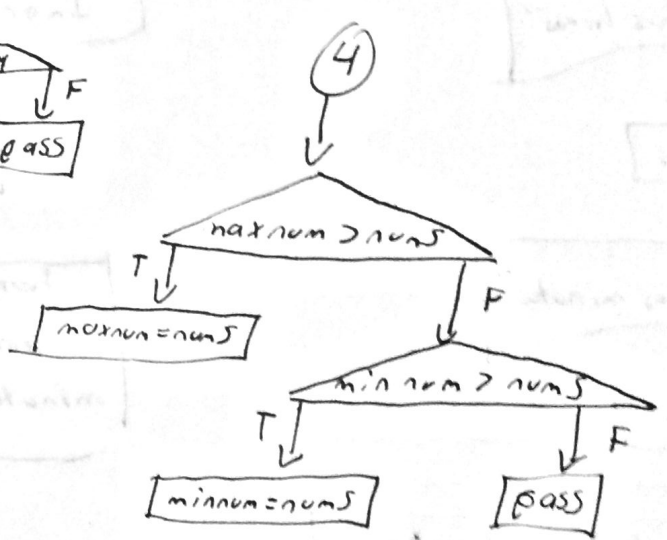 4
F
pass
maxnum > num5
T
F
maxnum = num5
min num > num5
T
F
minnum = num5
pass